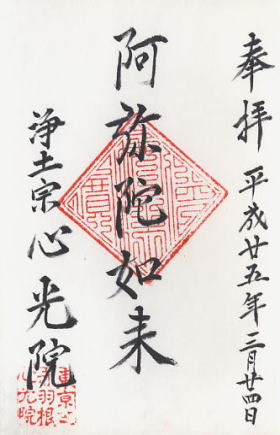 奉拝 平成廿五年三月廿四日
阿弥陀如来
浄土宗心光院
東京芝
赤羽根
心光院